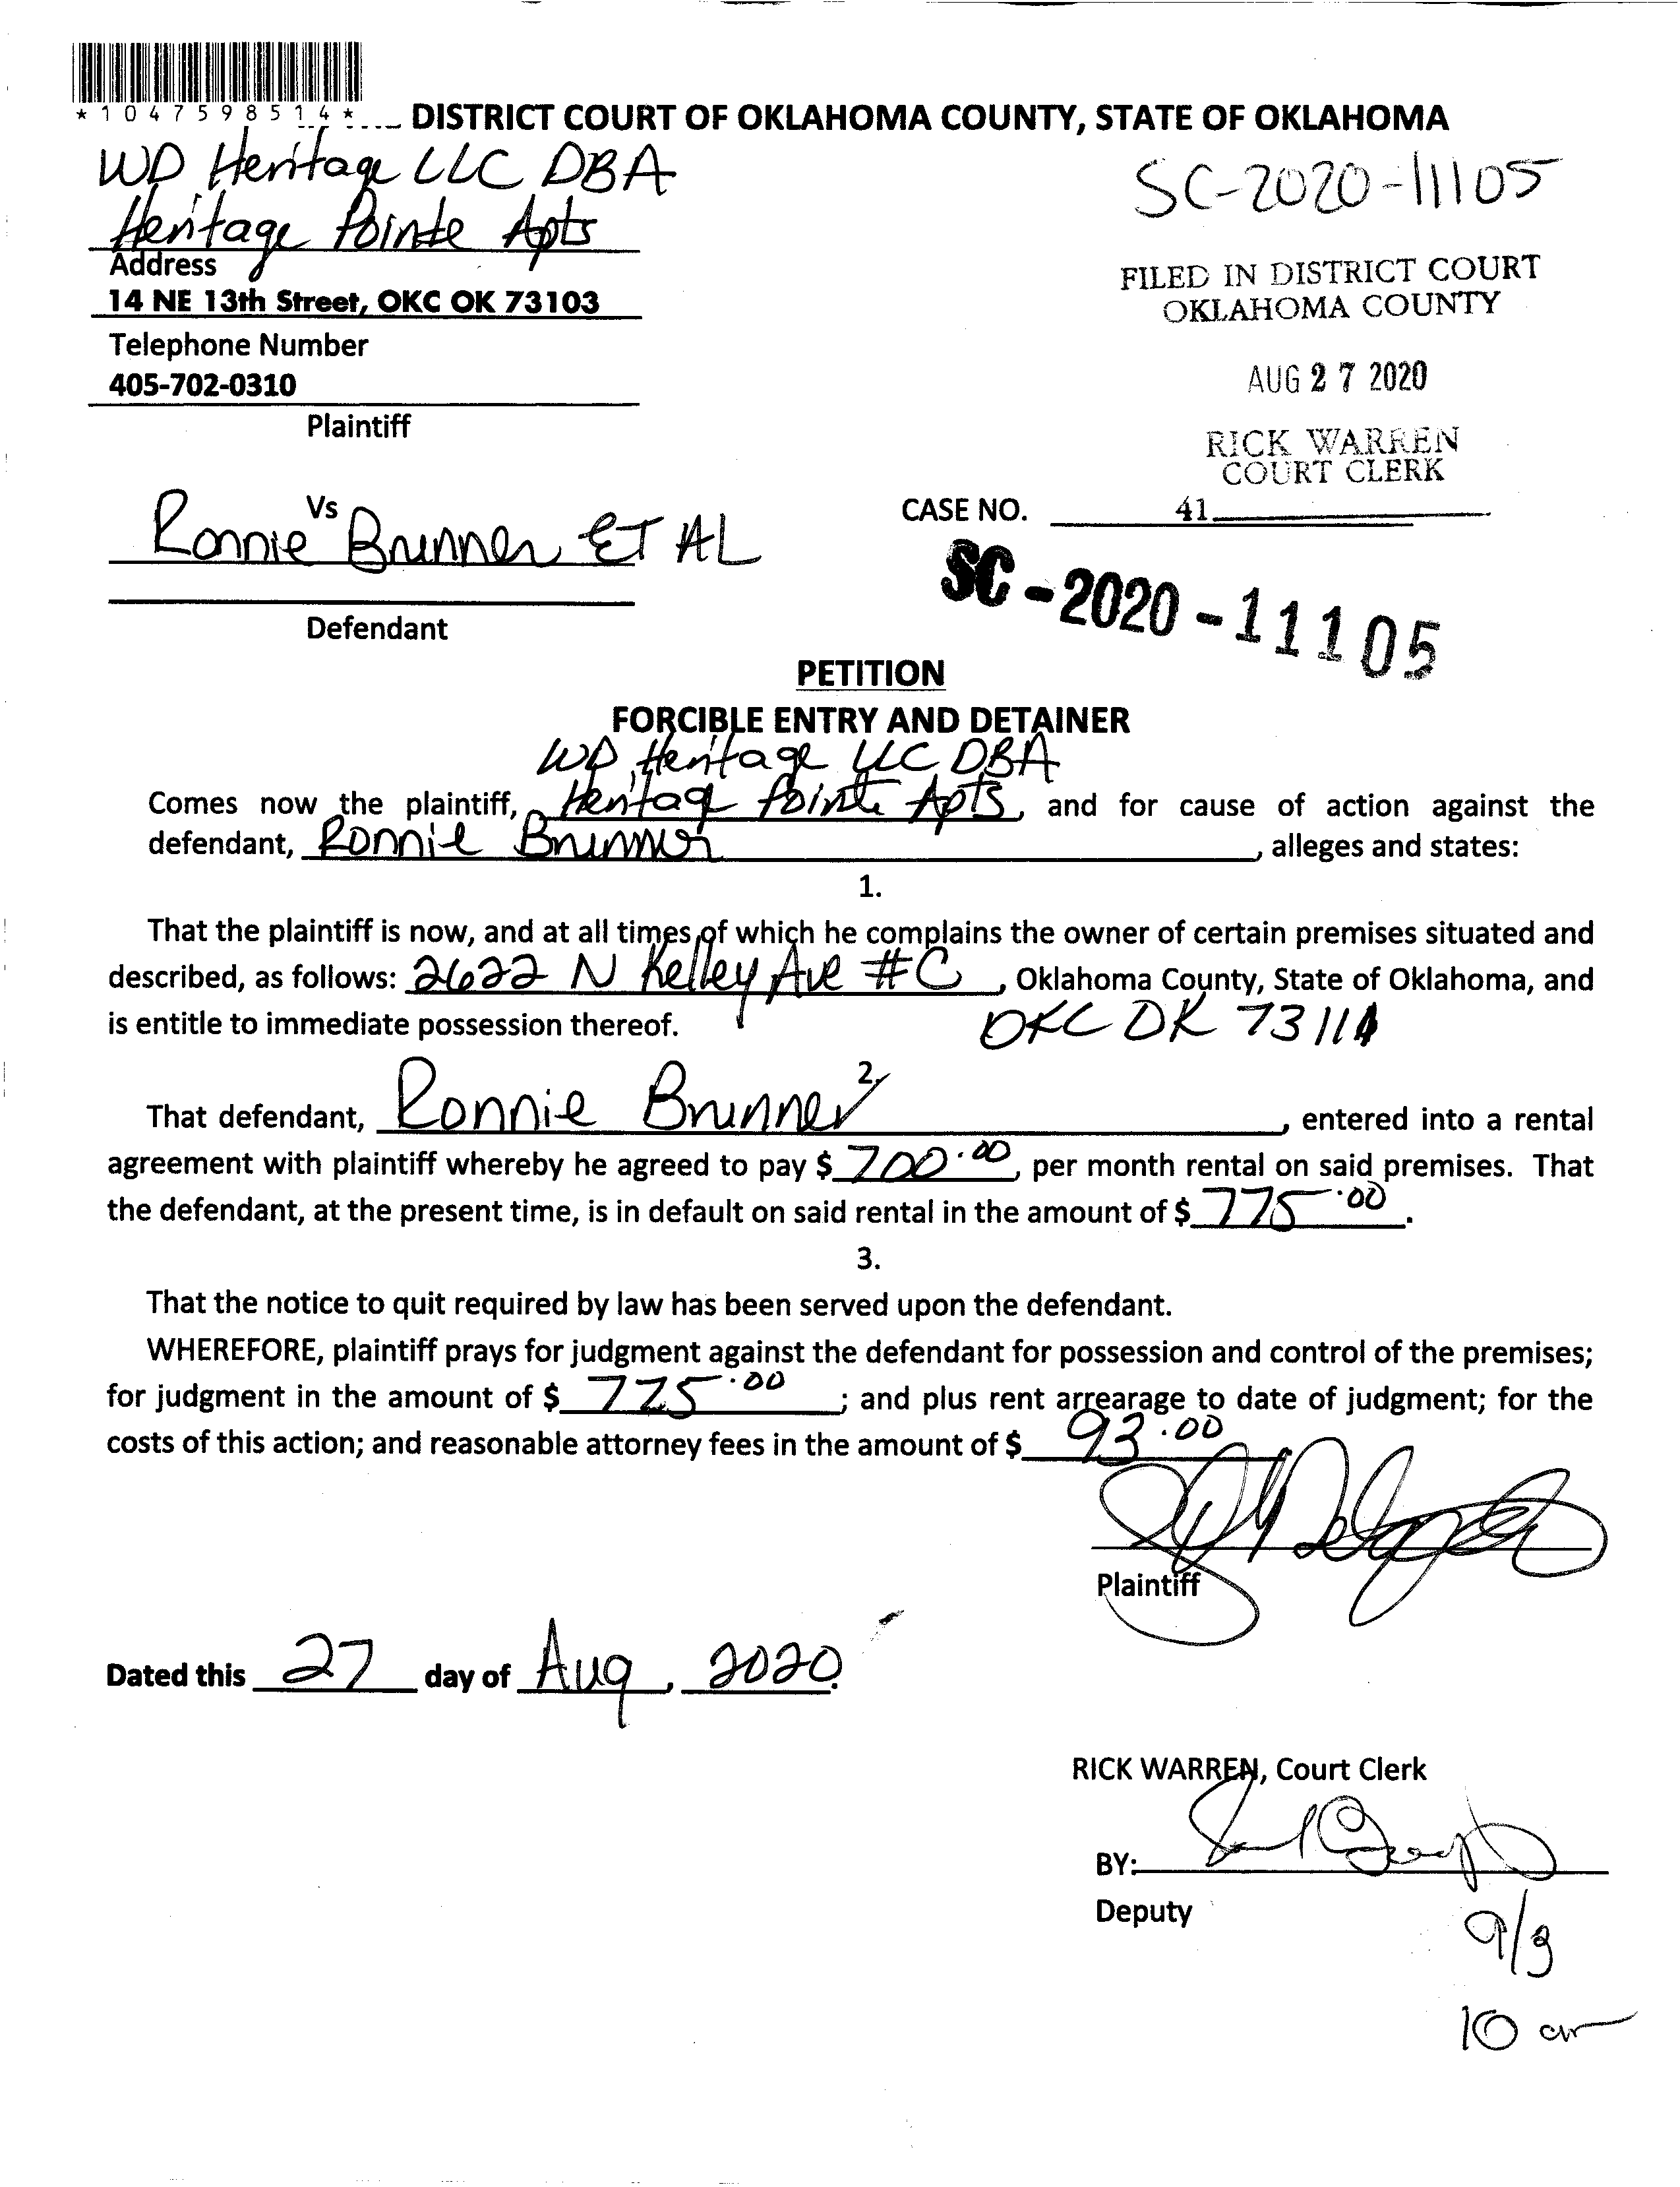 *1047598514*
DISTRICT COURT OF OKLAHOMA COUNTY, STATE OF OKLAHOMA
WD Heritage LLC DBA
Heritage Pointe Apts
SC-2020-11105
Address
14 NE 13th Street, OKC OK 73103
Telephone Number
405-702-0310
Plaintiff
FILED IN DISTRICT COURT
OKLAHOMA COUNTY
AUG 27 2020
RICK WARREN
COURT CLERK
41
Vs
Ronnie Brunner ET AL
Defendant
CASE NO.
SC-2020-11105
PETITION
FORCIBLE ENTRY AND DETAINER
WD Heritage LLC DBA
Comes now the plaintiff, Heritage Pointe Apts, and for cause of action against the
defendant, Ronnie Brunner, alleges and states:
1.
That the plaintiff is now, and at all times of which he complains the owner of certain premises situated and
described, as follows: 2622 N Kelley Ave #C, Oklahoma County, State of Oklahoma, and
is entitle to immediate possession thereof. OKC OK 73111
2.
That defendant, Ronnie Brunner, entered into a rental
agreement with plaintiff whereby he agreed to pay $ 700.00, per month rental on said premises. That
the defendant, at the present time, is in default on said rental in the amount of $ 775.00.
3.
That the notice to quit required by law has been served upon the defendant.
WHEREFORE, plaintiff prays for judgment against the defendant for possession and control of the premises;
for judgment in the amount of $ 775.00; and plus rent arrearage to date of judgment; for the
costs of this action; and reasonable attorney fees in the amount of $ 93.00
Plaintiff
Dated this 27 day of Aug, 2020.
RICK WARREN, Court Clerk
BY:
Deputy
9/3
10 am